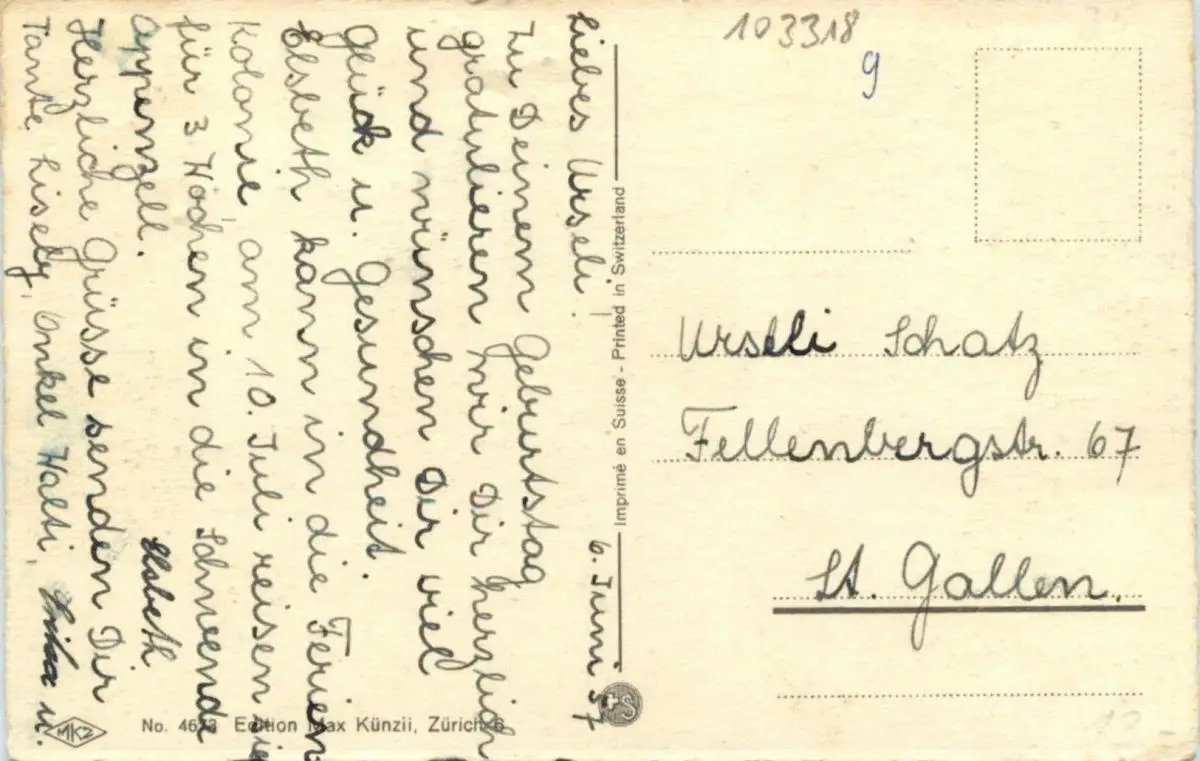 6. Juni 57
Liebes Urseli!
Zu Deinem Geburtstag
gratulieren wir Dir herzlich
und wünschen Dir viel
Glück u. Gesundheit.
Elsbeth kann in die Ferien
Kolonie, am 10. Juli reisen sie
für 3 Wochen in die Schwende
Appenzell.
Herzliche Grüsse senden Dir
Tante Liseby, Onkel Walti, Erika u.
Elsbeth
Imprimé en Suisse - Printed in Switzerland
MKZ
No. 4623 Edition Max Künzli, Zürich 6
103318
9
Urseli Schatz
Fellenbergstr. 67
St. Gallen.
12